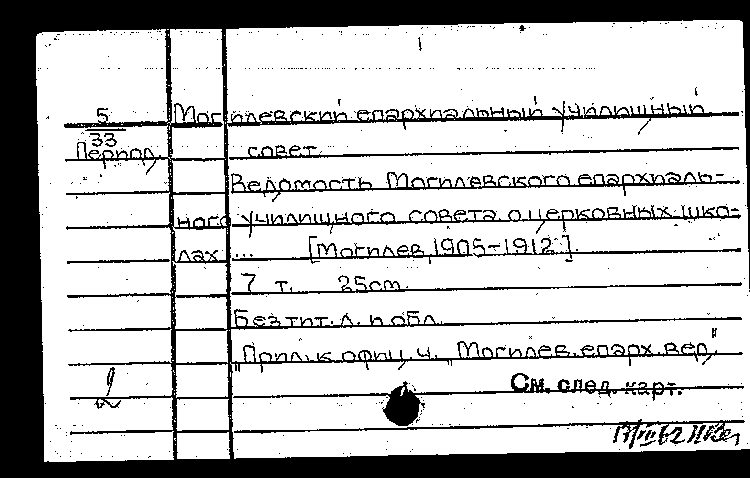 1
5 Могилевский епархиальный училищный
33
Период. совет
Ведомость Могилевского епархиаль-
ного училищного совета о церковных шко-
лах ... [Могилев, 1905-1912].
7 т. 25cm.
Без тит. л. и обл.
"Прил. к офиц. ч. „Могилев. епарх. вед."
2 См. след. карт.
17/III 62